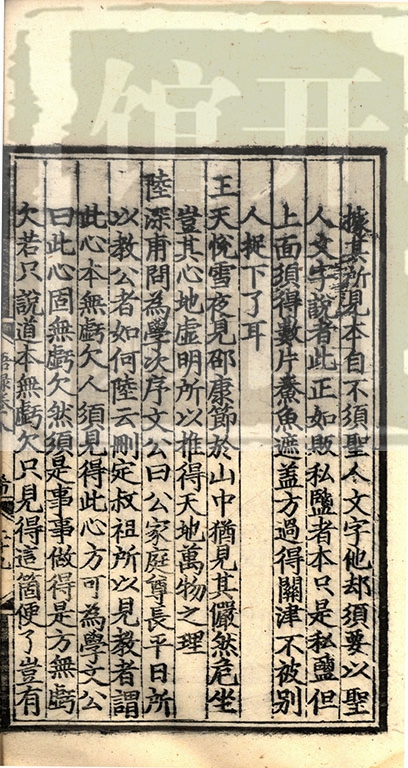 據其所見本自不須聖人文字他却須要以聖
人文字說者此正如敗私鹽者本只是私鹽但
上面須得數片鯗魚遮盖方過得關津不被别
人捉下了耳
王天恱雪夜見邵康節於山中猶見其儼然危坐
豈其心地虚明所以推得天地萬物之理
陸深甫問為學次序文公曰公家庭尊長平日所
以教公者如何陸云刪定叔祖所以見教者謂
此心本無虧欠人須見得此心方可為學文公
曰此心固無虧欠然須是事事做得是方無虧
欠若只說道本無虧欠只見得這箇便了豈有